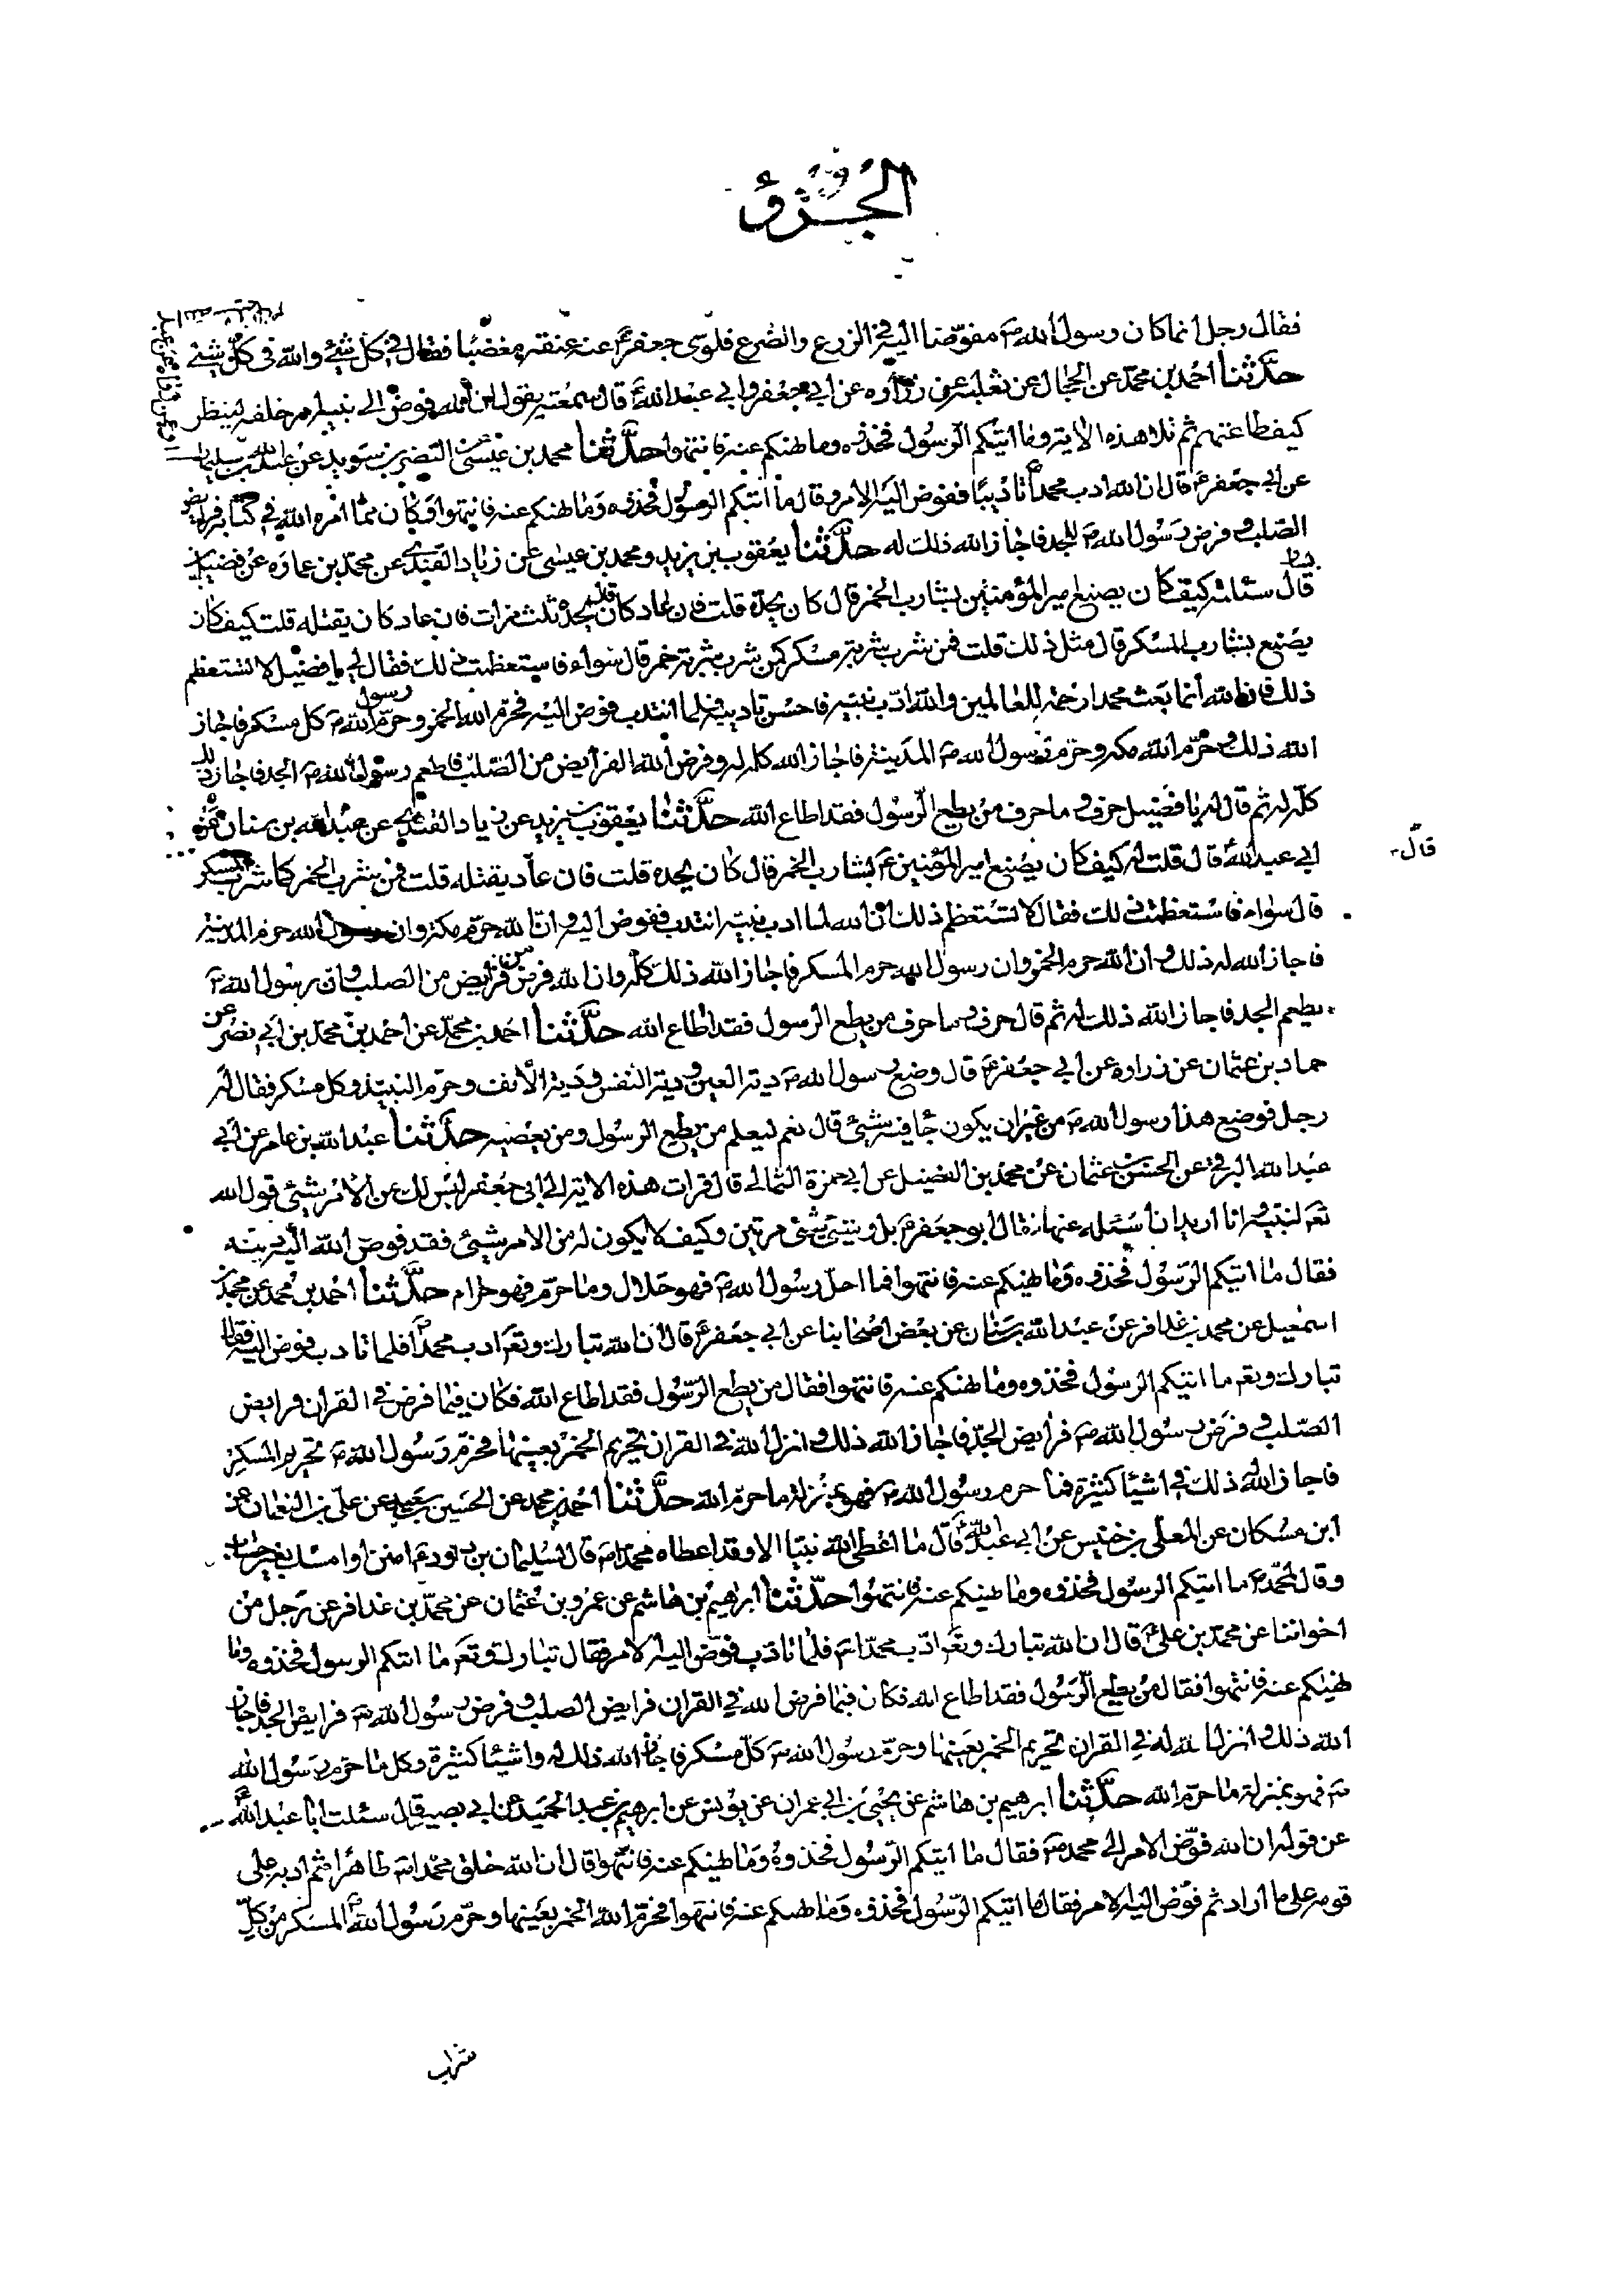 الجزؤ
فقال رجل انما كان رسول الله ص مفوضا اليه في الزرع والضرع فلوى جعفر ع عنه عنقه مغضبا فقال في كل شئ والله في كل شئ
حدّثنا احمد بن محمد عن الحجال عن ثعلبه عن زراره عن ابي جعفر وابي عبد الله ع قال سمعته يقول ان الله فوض الى نبيه امر خلقه لينظر
كيف طاعتهم ثم تلا هذه الاية وما اتيكم الرسول فخذوه وما نهيكم عنه فانتهوا حدّثنا محمد بن عيسى عن النضر بن سويد عن عبد الله بن سليمان
عن ابي جعفر ع قال ان الله ادب محمدا تاديبا ففوض اليه الامر وقال ما اتيكم الرسول فخذوه وما نهيكم عنه فانتهوا فكان مما امره الله في كتابه فرايض
الصلب وفرض رسول الله ص للجد فاجاز الله ذلك له حدّثنا يعقوب بن يزيد ومحمد بن عيسى عن زياد القندى عن محمد بن عماره عن فضيل بن
يسار
قال سئلته كيف كان يصنع امير المؤمنين بشارب الخمر قال كان يحدّه قلت فان عاد قال كان يحدّه ثلث مرات فان عاد كان يقتله قلت كيف كان
يصنع بشارب المسكر قال مثل ذلك قلت فمن شرب شربة مسكر كمن شرب شربة خمر قال سواء فاستعظمت ذلك فقال لي يا فضيل لا تستعظم
ذلك فان الله انما بعث محمدا رحمة للعالمين والله ادّب نبيه فاحسن تاديبه فلما ائتدب فوض اليه فحرم الله الخمر وحرّم رسول الله ص كل مسكر فاجاز
الله ذلك وحرّم الله مكه وحرّم رسول الله ص المدينة فاجاز الله كله له وفرض الله الفرايض من الصّلب فاطعم رسول الله ص الجد فاجاز ذلك
كلّه له ثم قال له يا فضيل حرف وما حرف من يطع الرّسول فقد اطاع الله حدّثنا يعقوب بن يزيد عن زياد القندى عن عبد الله بن سنان عن
قال
ابي عبد الله ع قال قلت له كيف كان يصنع امير المؤمنين ع بشارب الخمر قال كان يحده قلت فان عاد يقتله قلت فمن شرب الخمر كما شرب المسكر
قال سواء فاستعظمت ذلك فقال لا تستعظم ذلك ان الله لما ادب نبيه ائتدب ففوض اليه وان الله حرّم مكه وان رسول الله حرم المدينة
فاجاز الله له ذلك وان الله حرم الخمر وان رسول الله حرم المسكر فاجاز الله ذلك كله وان الله فرض فرايض من الصلب وان رسول الله ص
يطعم الجد فاجاز الله ذلك له ثم قال حرف وما حرف من يطع الرسول فقد اطاع الله حدّثنا احمد بن محمد عن احمد بن محمد بن ابي نصر عن
حماد بن عثمان عن زراره عن ابي جعفر ع قال وضع رسول الله ص دية العين ودية النفس ودية الانف وحرّم النبيذ وكل مسكر فقال له
رجل فوضع هذا رسول الله ص من غير ان يكون جاء فيه شئ قال نعم ليعلم من يطع الرسول ومن يعصيه حدّثنا عبد الله بن عامر عن ابي
عبد الله البرقي عن الحسن بن عثمان عن محمد بن الفضيل عن ابي حمزة الثمالي قال قرات هذه الاية الى ابي جعفر ليس لك من الامر شئ قول الله
تع لنبيه وانا اريد ان اسئله عنها فقال ابو جعفر ع بل وشئ وشئ مرتين وكيف لا يكون له من الامر شئ فقد فوض الله اليه دينه
فقال ما اتيكم الرّسول فخذوه وما نهيكم عنه فانتهوا فما احلّ رسول الله ص فهو حلال وما حرّم فهو حرام حدّثنا احمد بن محمد عن محمد بن
اسمعيل عن محمد بن عذافر عن عبد الله بن سنان عن بعض اصحابنا عن ابي جعفر ع قال ان الله تبارك وتع ادب محمدا ص فلما تادب فوض اليه فقال
تبارك وتع ما اتيكم الرسول فخذوه وما نهيكم عنه فانتهوا فقال من يطع الرّسول فقد اطاع الله فكان فيما فرض في القران فرايض
الصّلب وفرض رسول الله ص فرايض الجدّ فاجاز الله ذلك وانزل الله في القران تحريم الخمر بعينها فحرّم رسول الله ص تحريم المسكر
فاجاز الله له ذلك في اشيا كثيرة فما حرم رسول الله ص فهو بمنزلة ما حرم الله حدّثنا احمد بن محمد عن الحسين بن سعيد عن علي بن النعمان عن
ابن مسكان عن المعلى بن خنيس عن ابي عبد الله ع قال ما اعطى الله نبيا الا وقد اعطاه محمدا ص قال لسليمان بن داود ع امنن او امسك بغير حساب
وقال لمحمد ص ما اتيكم الرسول فخذوه وما نهيكم عنه فانتهوا حدّثنا ابرهيم بن هاشم عن عمرو بن عثمان عن محمد بن عذافر عن رجل من
اخواننا عن محمد بن علي ع قال ان الله تبارك وتع ادّب محمدا ص فلما تادب فوّض اليه الامر فقال تبارك وتع ما اتيكم الرسول فخذوه وما
نهيكم عنه فانتهوا فقال من يطع الرّسول فقد اطاع الله فكان فيما فرض الله في القران فرايض الصلب وفرض رسول الله ص فرايض الجد فاجاز
الله ذلك وانزل الله له في القران تحريم الخمر بعينها وحرّم رسول الله ص كلّ مسكر فاجاز الله ذلك له واشيا كثيرة وكل ما حرّم رسول الله
ص فهو بمنزلة ما حرّم الله حدّثنا ابرهيم بن هاشم عن يحيى بن ابي عمران عن يونس عن ابرهيم بن عبد الحميد عن ابي بصير قال سئلت ابا عبد الله ع
عن قوله ان الله فوّض الامر الى محمد ص فقال ما اتيكم الرّسول فخذوه وما نهيكم عنه فانتهوا قال ان الله خلق محمدا ص طاهرا ثم ادبه على
قومه على ما اراد ثم فوّض اليه الامر فقال ما اتيكم الرّسول فخذوه وما نهيكم عنه فانتهوا فحرّم الله الخمر بعينها وحرّم رسول الله ص المسكر من كلّ
شراب